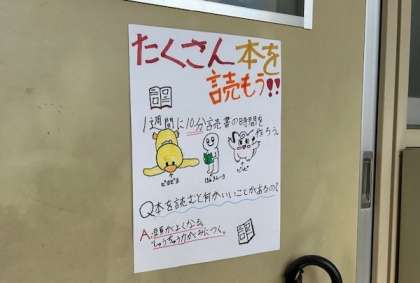 たくさん本を
読もう!!
1週間に10分読書の時間を
作ろう。
Q本を読むと何かいいことがあるの?
A.頭がよくなる。
しゅうちゅう力がみにつく。